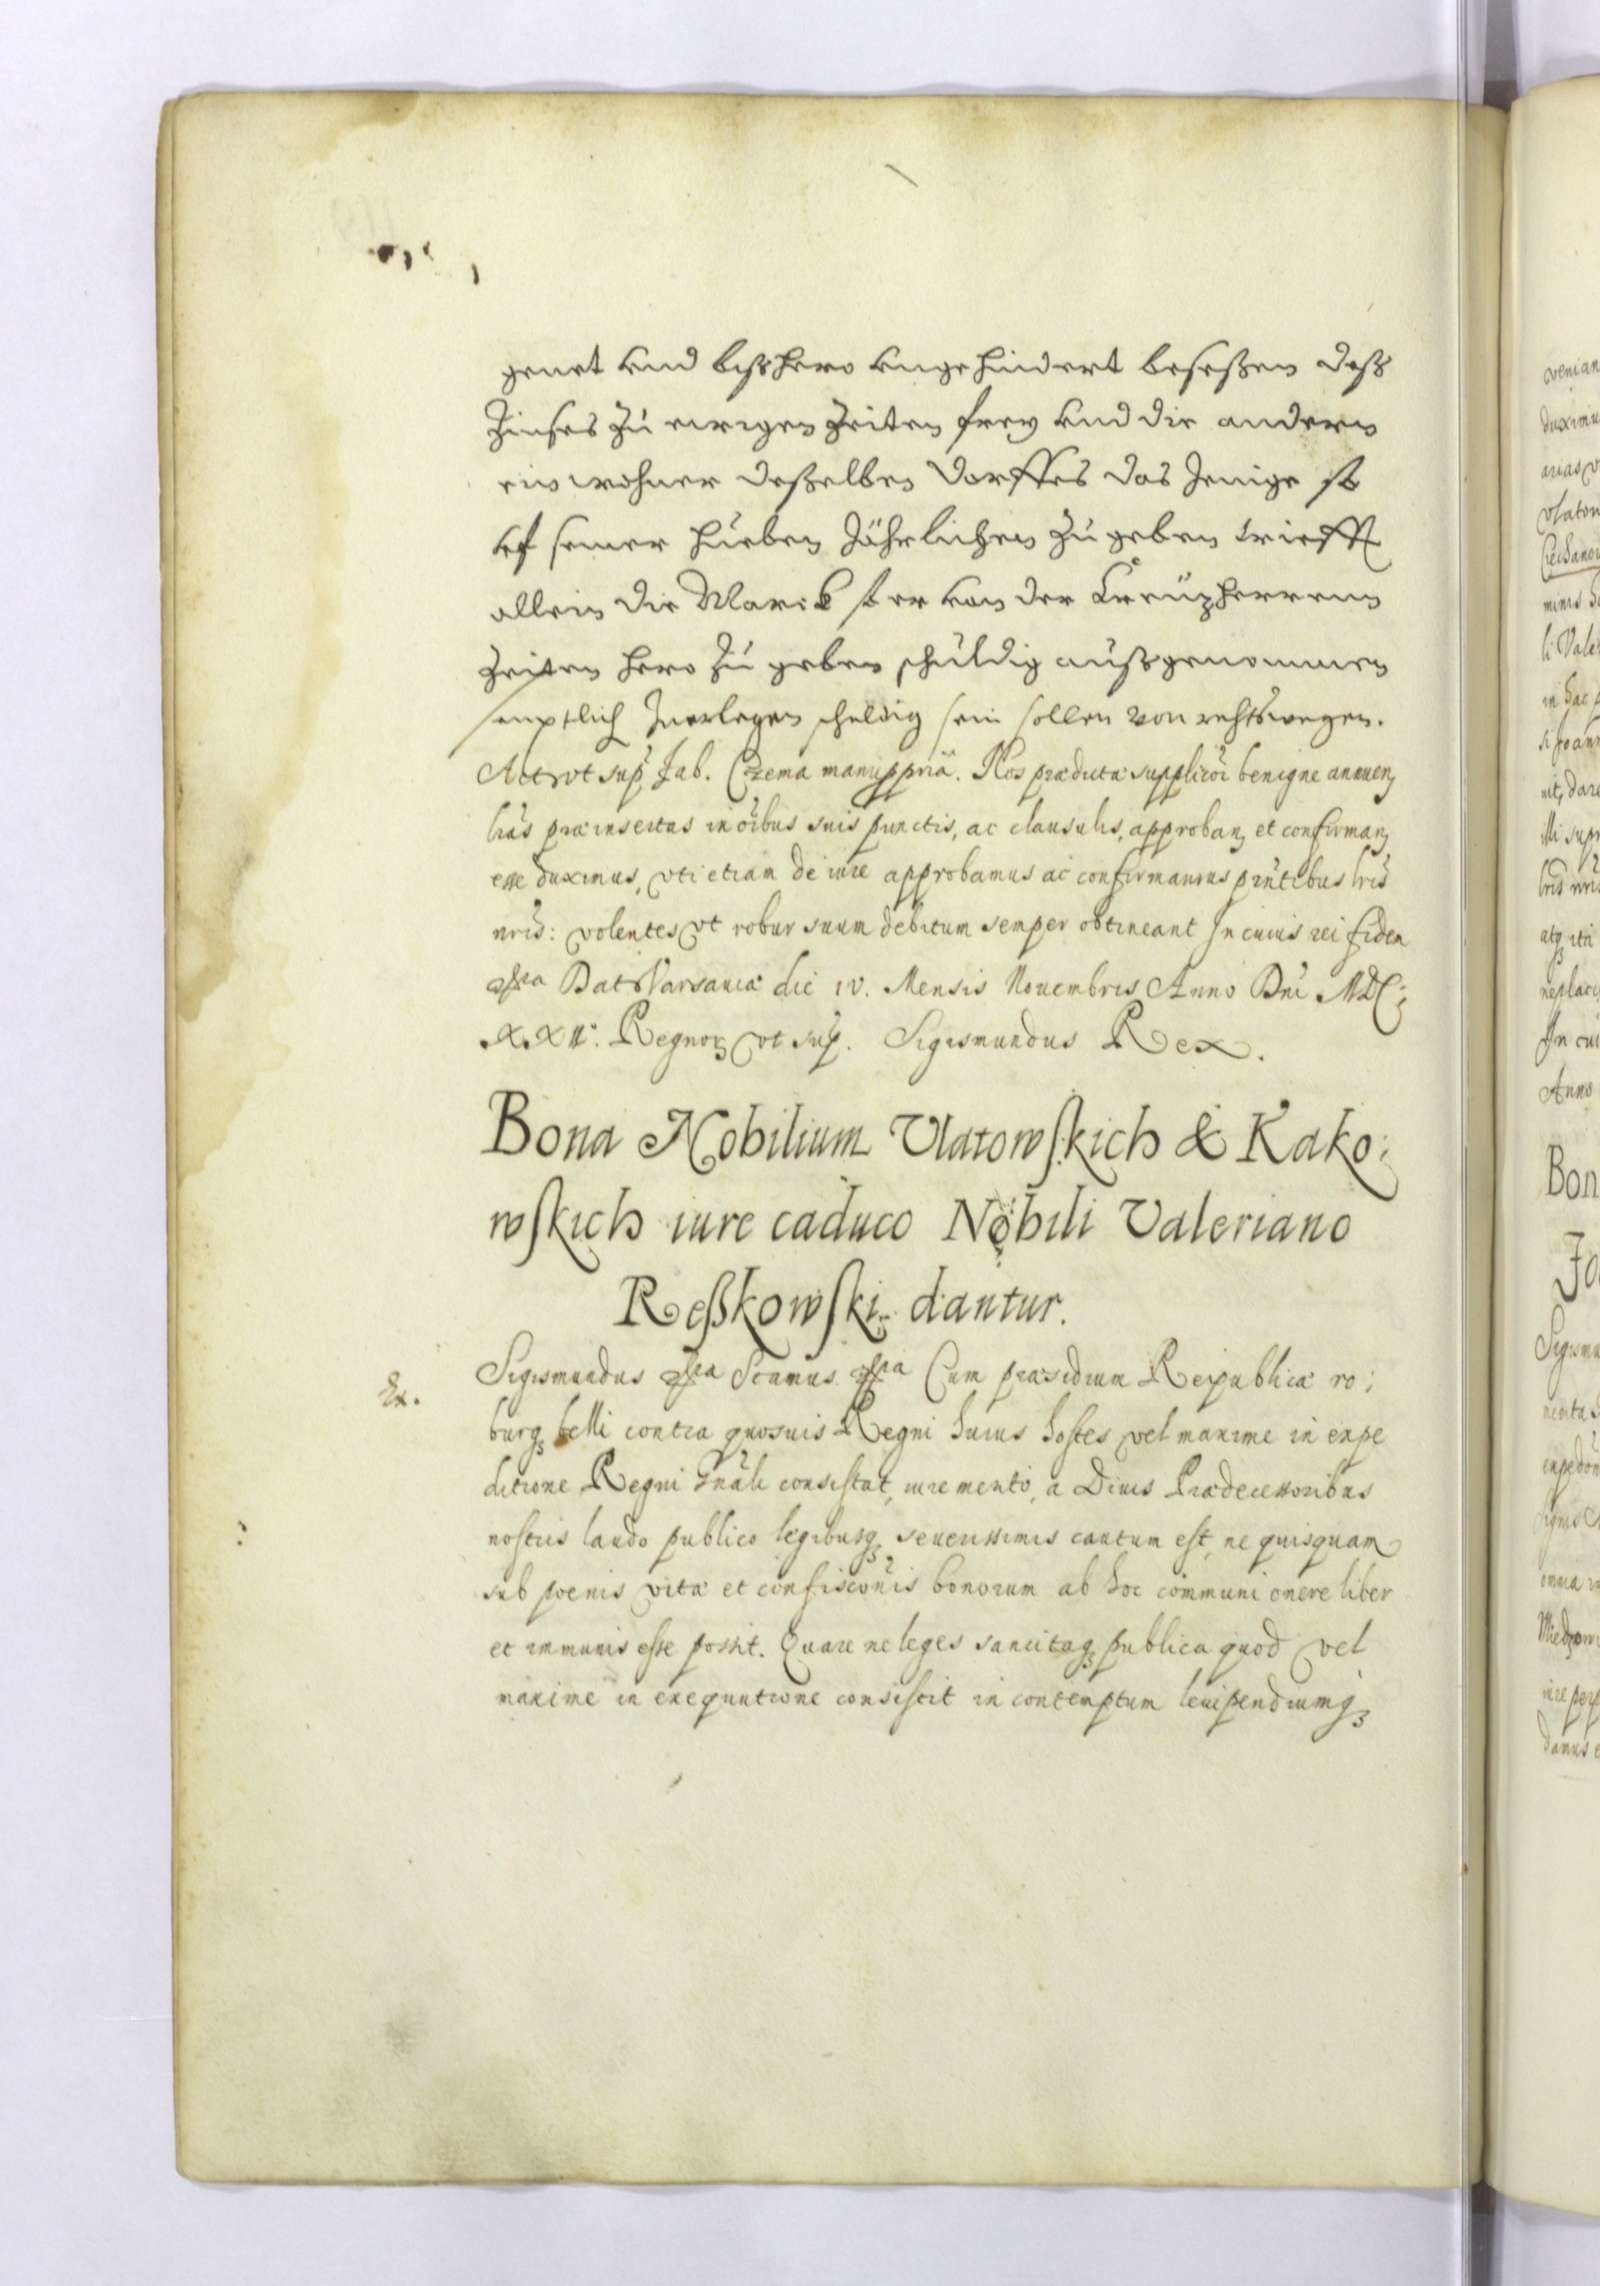 genet und bißhero ungehindert beseßen deß
Zinses zu ewigen Zeiten frey und die andern
einwohner deßelben Dorffes das Jenige so
uf seiner hueben Jährlichen zu geben trifft
allein die Marck so er von der Kreuzherrenn
Zeiten hero zu geben schuldig außgenommen
semptlich Zuerlegen schuldig sein sollen von rechtswegen.
Act vt sup Fab. Czema manu ppria. Nos prædictæ supplicõi benigne annuen
lras præinsertas in oibus suis punctis, ac clausulis, approban et confirman
esse duximus, vti etiam de iure approbamus ac confirmamus pntibus lris
nris: volentes vt robur suum debitum semper obtineant In cuius rei fidem
Dat Varsauiæ die IV. Mensis Nouembris Anno Dni MDC;
XXII. Regnoꝝ vt sup. Sigismundus Rex.
Bona Nobilium Vlatowskich & Kako;
wskich iure caduco Nobili Valeriano
Reßkowski dantur.
Ex.
Sigismundus Scamus Cum præsidium Reipublicæ ro;
burqꝫ belli contra quosuis Regni huius hostes vel maxime in expe
ditione Regni gnali consistat, iure merito, a Diuis Prædecessoribus
nostris laudo publico legibusqꝫ seuerissimis cautum est, ne quisquam
sub poenis vitæ et confiscõnis bonorum ab hoc communi onere liber
et immunis esse possit. Quare ne leges sancitaqꝫ publica quod vel
maxime in exequutione consistit in contemptum leuipendiumqꝫ